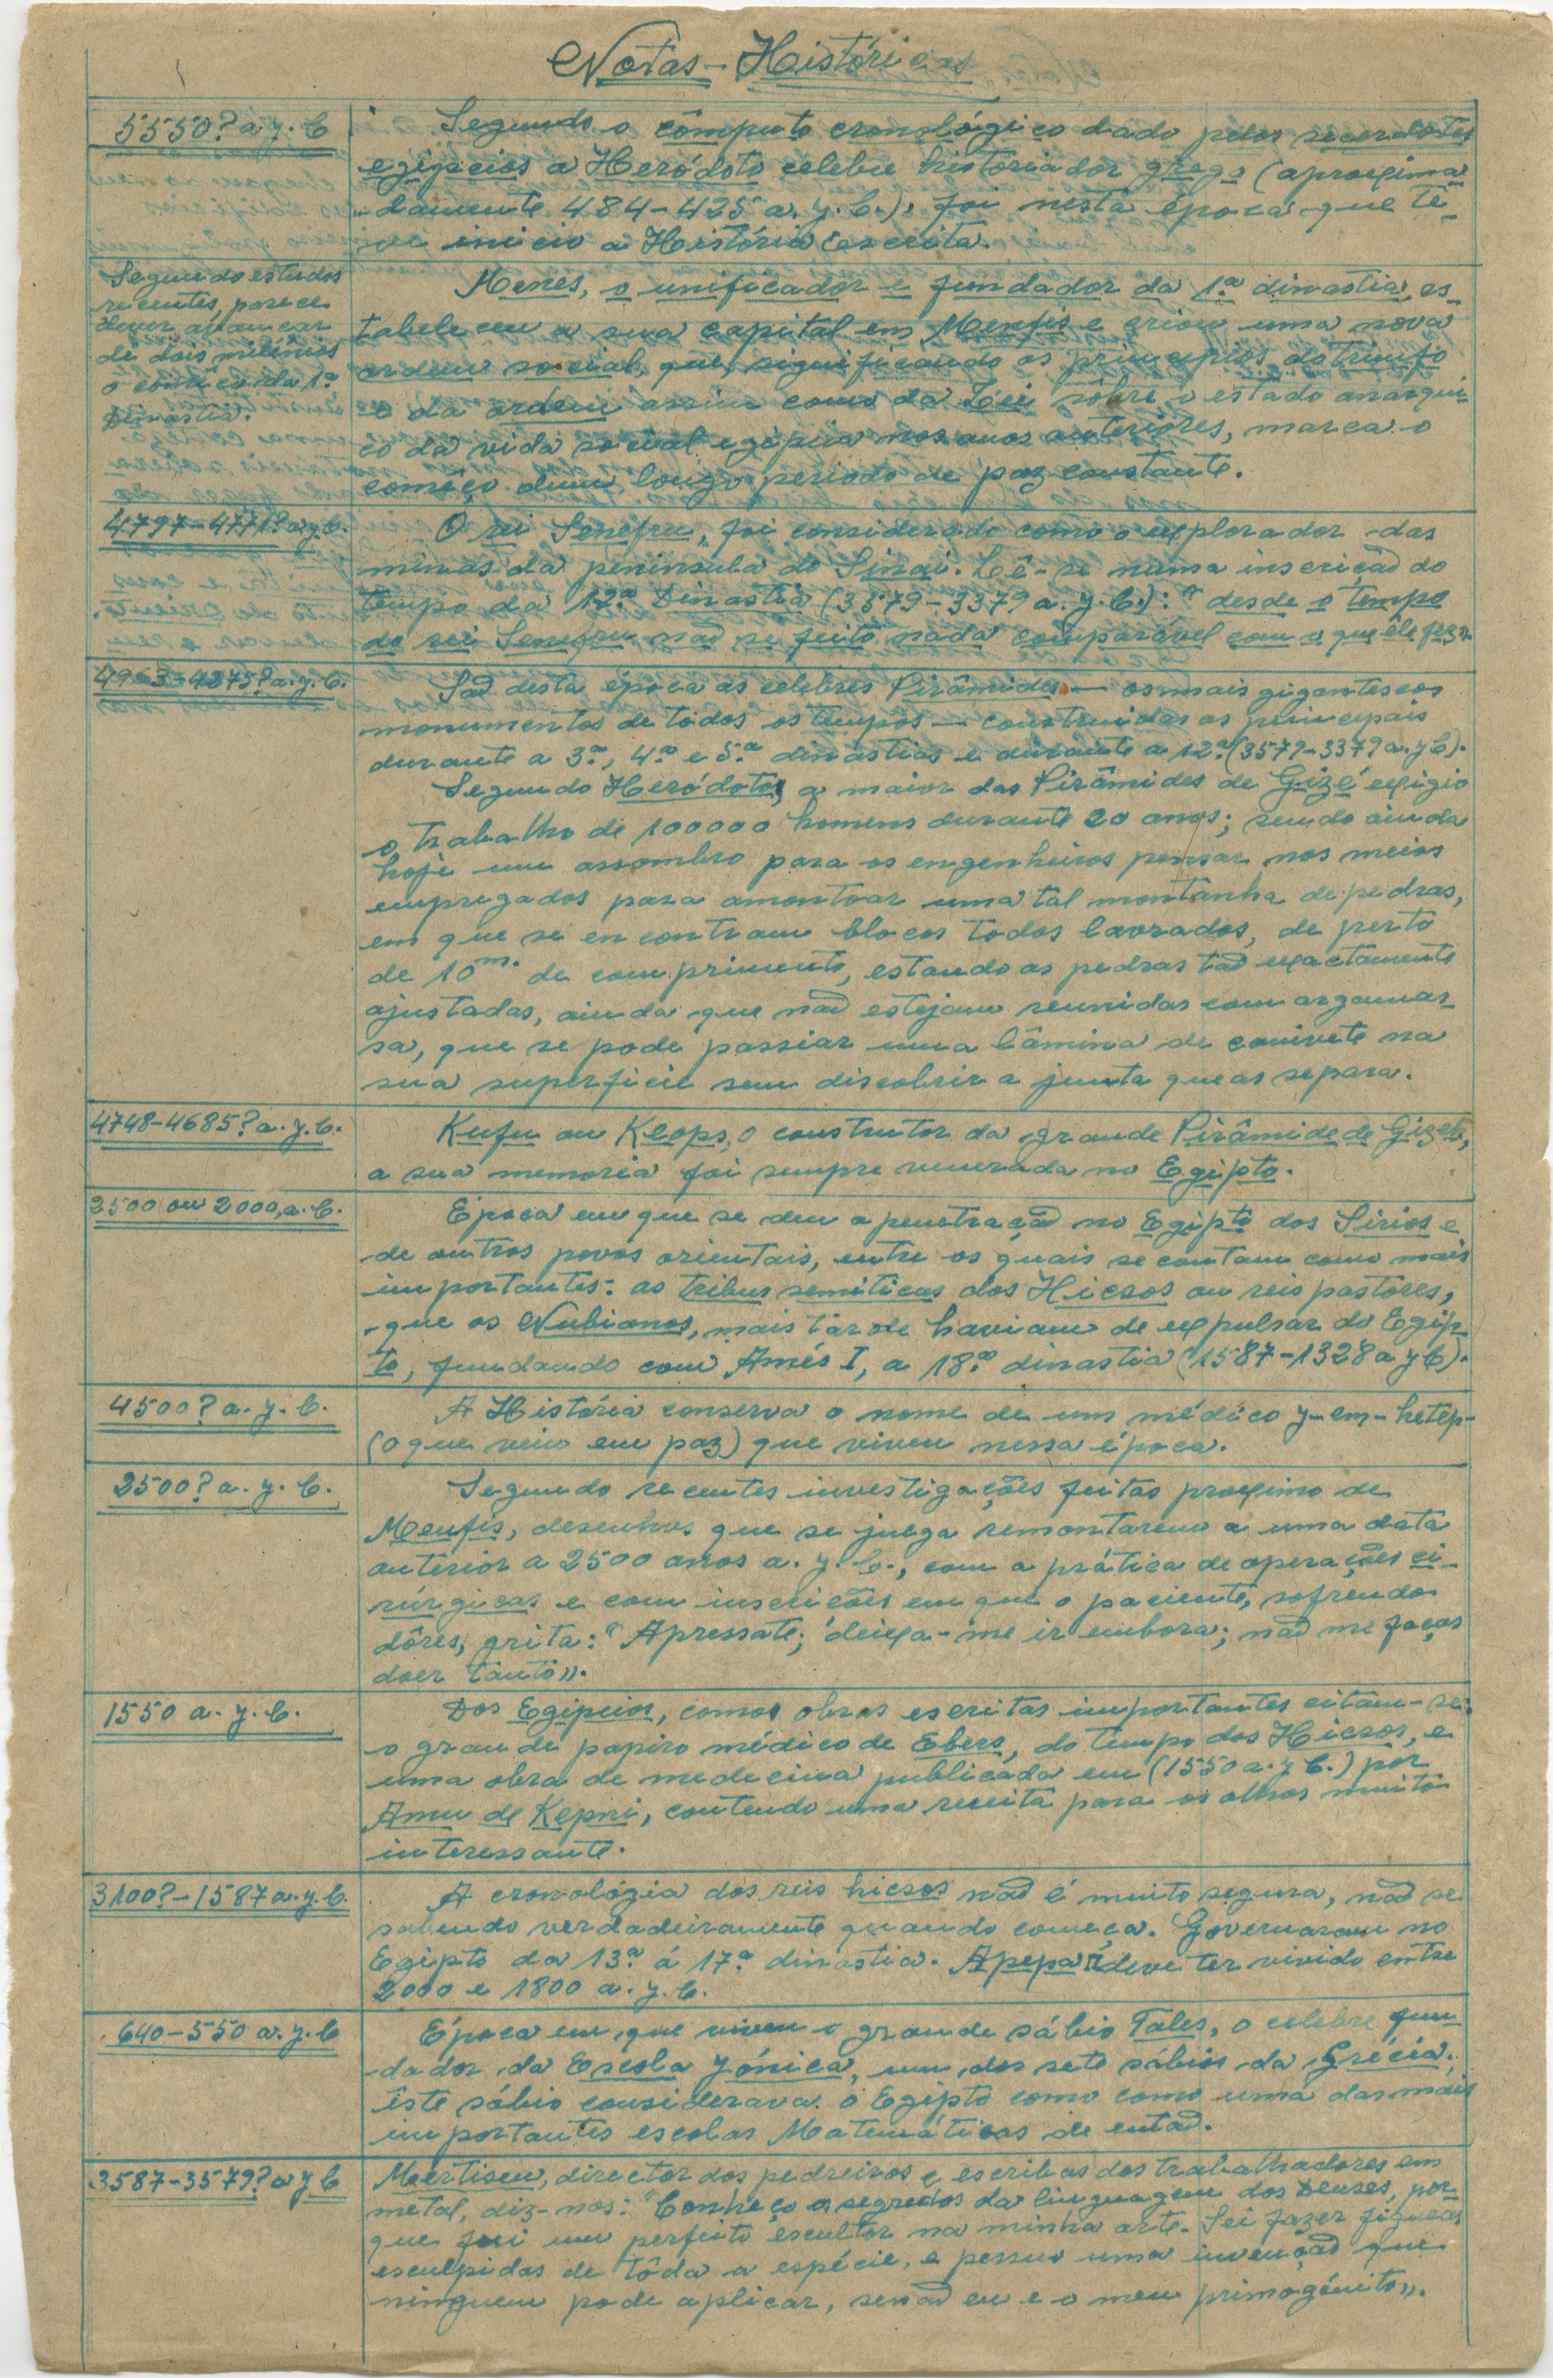 Notas-Históricas
5550? a. J. C
Segundo o cômputo cronológico dado pelos sacerdotes
egípcios a Heródoto celebre historiador grego (aproxima-
damente 484-425 a. J. C.), foi nesta época que te-
ve inicio a História escrita.
Segundo estudos
recentes, parece
dever avançar
de dois milénios
o comêço da 1ª
Dinastia.
Menes, o unificador e fundador da 1ª dinastia, es-
tabeleceu a sua capital em Menfis e criou uma nova
ordem social, que, significando os principios do triunfo
e da ordem assim como da Lei sôbre o estado anárqui-
co da vida social egipcia nos anos anteriores, marca o
comêço dum longo periodo de paz constante.
4797-4771? a. J. C.
O rei Senefru, foi considerado como o explorador das
minas da península do Sinai. Lê-se numa inscrição do
tempo da 12ª Dinastia (3579-3379 a. J. C.): "desde o tempo
do rei Senefru não se feito nada comparável com o que êle fez"
4963-4275? a. J. C.
São desta época as celebres Pirâmides — os mais gigantescos
monumentos de todos os tempos — construidas as principais
durante a 3ª, 4ª e 5ª dinastias e durante a 12ª (3579-3379 a. J C).
Segundo Heródoto, a maior das Pirâmides de Gizé exigio
o trabalho de 100000 homens durante 20 anos; sendo ainda
hoje um assombro para os engenheiros pensar nos meios
empregados para amontoar uma tal montanha de pedras,
em que se encontram blocos todos lavrados, de perto
de 10m. de comprimento, estando as pedras tão exactamente
ajustadas, ainda que não estejam reunidas com argamas-
sa, que se pode passear uma lâmina de canivete na
sua superficie sem discobrir a junta que as separa.
4748-4685? a. J. C.
Kufu ou Keops, o construtor da grande Pirâmide de Gizeh,
a sua memoria foi sempre venerada no Egipto.
2500 ou 2000, a. C.
Epoca em que se deu a penetração no Egipto dos Sirios e
de outros povos orientais, entre os quais se contam como mais
importantes: as tribus semiticas dos Hicsos ou reis pastores,
que os Nubianos, mais tarde haviam de expulsar do Egip-
to, fundando com Amés I, a 18ª dinastia (1587-1328 a J C).
4500? a. J. C.
A História conserva o nome de um médico J-em-hetep-
(o que veio em paz) que viveu nessa época.
2500? a. J. C.
Segundo recentes investigações feitas proximo de
Menfis, desenhos que se julga remontarem a uma data
anterior a 2500 anos a. J. C., com a prática de operações ci-
rúrgicas e com inscrições em que o paciente, sofrendo
dôres, grita: "Apressate; deixa-me ir embora; não me faças
doer tanto».
1550 a. J. C.
Dos Egipcios, como obras escritas importantes citam-se:
o grande papiro médico de Ebers, do tempo dos Hicsos, e
uma obra de medecina publicada em (1550 a. J C.) por
Amu de Kepni, contendo uma receita para os olhos muito
interessante.
3100?-1587 a. J. C.
A cronológia dos reis hicsos não é muito segura, não se
sabendo verdadeiramente quando começa. Governaram no
Egipto da 13ª á 17ª dinastia. Apepa I deve ter vivido entre
2000 e 1800 a. J. C.
640-550 a. J. C
Época em que viveu o grande sábio Tales, o celebre fun
dador da Escola Jónica, um dos sete sábios da Grécia;
êste sábio considerava o Egipto como como uma das mais
importantes escolas Matemáticas de então.
3587-3579? a J C
Mertisen, director dos pedreiros e escribas dos trabalhadores em
metal, diz-nos: "Conheço os segredos da linguagem dos Deuses, por-
que fui um perfeito escultor na minha arte. Sei fazer figuras
esculpidas de tôda a espécie, e possuo uma invenção que
ninguem pode aplicar, senão eu e o meu primogénito».